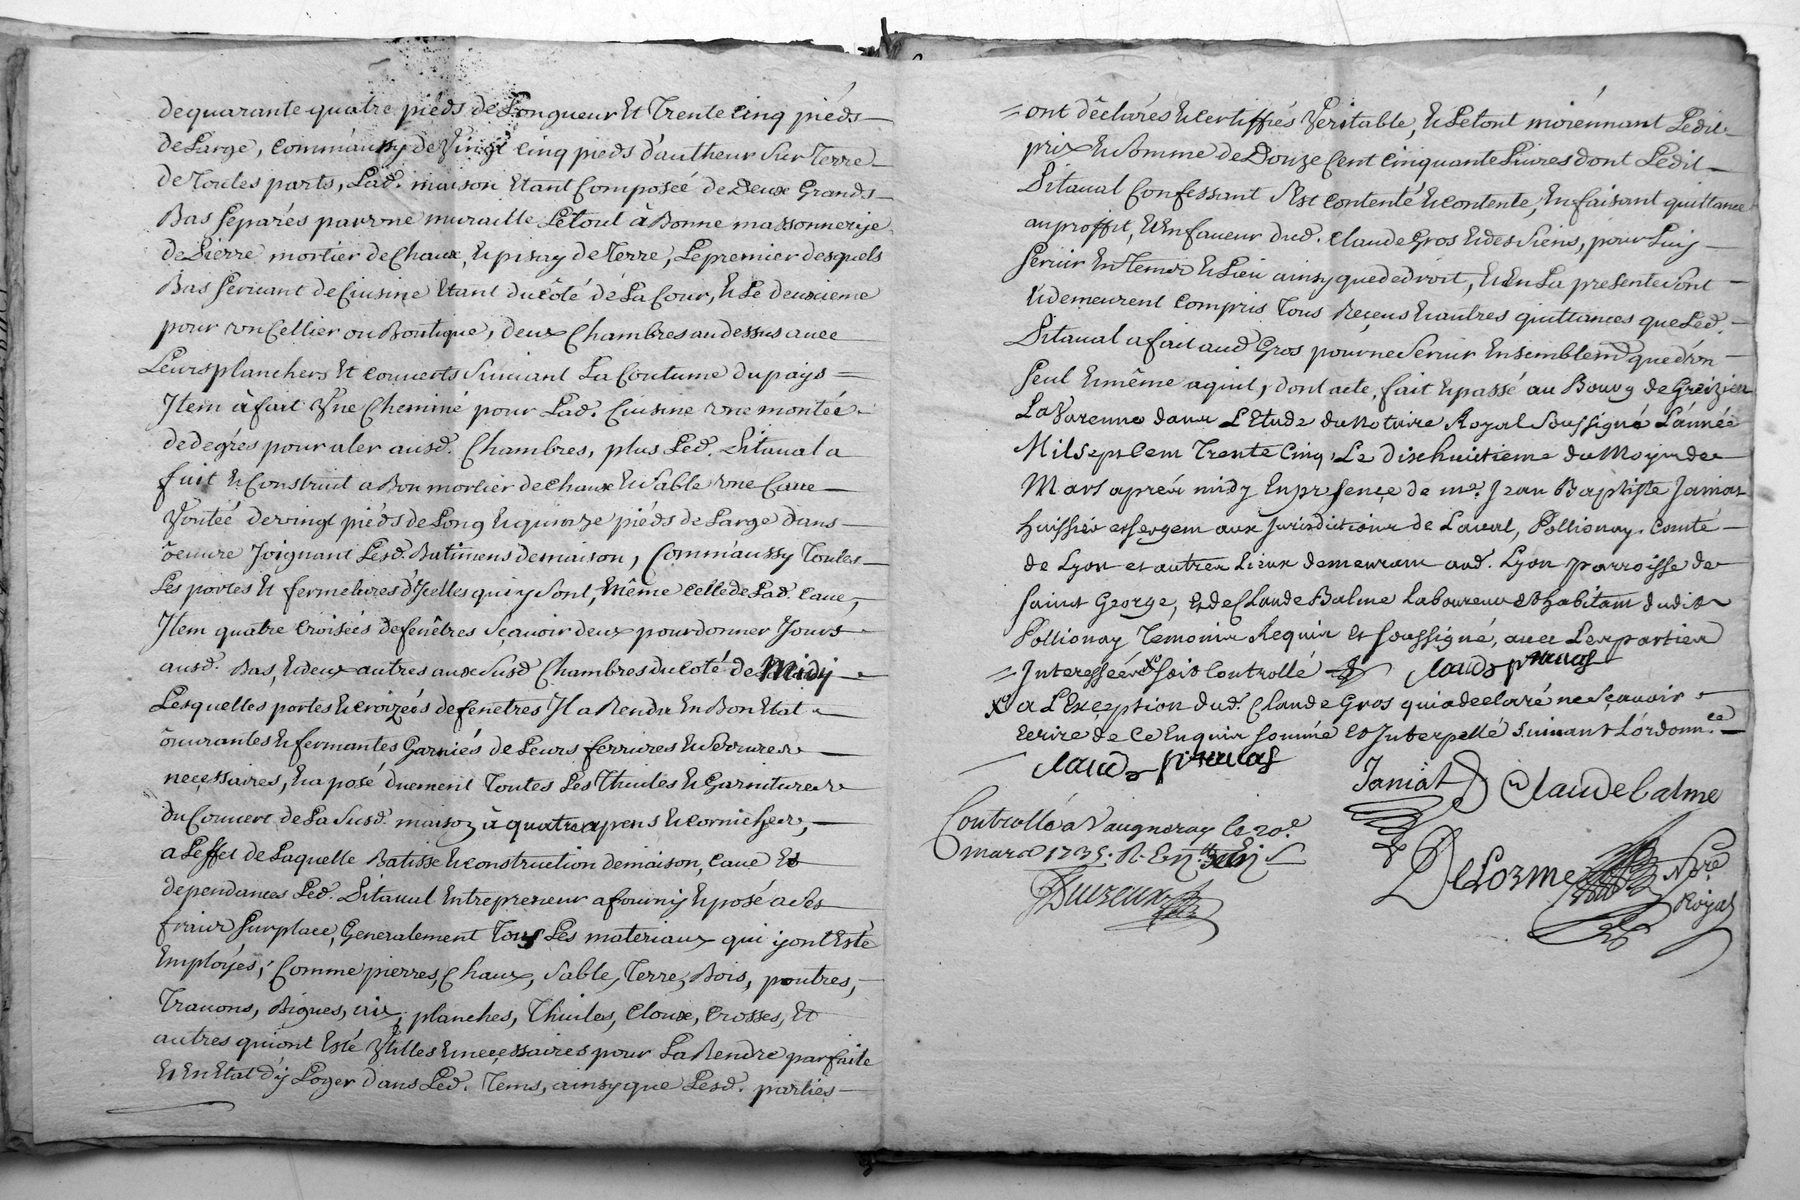 de quarante quatre pieds de Longueur Et Trente Cinq pieds
de Large, comm'aussy de Vingt cinq pieds d'autheur Sur Terre
de Toutes parts, Lad. maison Etant Composée de Deux Grands
Bas separés par vne muraille Le tout à Bonne massonnerije
de Pierre mortier de Chaux, Et pisay de Terre, Le premier desquels
Bas servant de Cuisine Etant du Côté de La Cour, Et Le deuxieme
pour vn Cellier ou Boutique, deux Chambres au dessus avec
Leurs planchers Et couverts Suivant La Coutume du pays
Item à fait Vne Cheminé pour Lad. Cuisine vne montée
de degrés pour aler ausd. Chambres, plus Led. Pitaval a
fait Et Construit a Bon mortier de Chaux Et Sable vne Cave
Voutée de vingt pieds de Long Et quinze pieds de Large dans
œuvre Joignant Lesd. Batimens de maison, Comm'aussy Toutes
Les portes Et fermetures d'Jcelles qui y Sont, même Celle de Lad. Cave,
Item quatre croisées de fenêtres Sçavoir deux pour donner Jours
ausd. Bas, Et deux autres aux Susd Chambres du Coté de Midy
Lesquelles portes Et croizées de fenetres Jl a Rendu En Bon Etat
ouvrantes Et fermantes Garniés de Leurs ferrures Et Serrures
necessaires, Et a posé duement Toutes Les Thuiles Et Garnitures
du Couvert de La Susd. maison à quatre apens Et cornicher,
a L'effet de Laquelle Batisse Et construction de maison, Cave Et
dependances Led. Pitaval Entrepreneur a fourny Et posé a Ses
fraix Sur place, Generalement Tous Les materiaux qui y ont Esté
Employés, Comme pierres, Chaux, Sable, Terre, Bois, poutres,
Travons, Bigues, aix, planches, Thuiles, Cloux, Crosses, Et
autres qui ont Esté Vtilles Et necessaires pour La Rendre parfaite
Et En Etat d'y Loger dans Led. Tems, ainsy que Lesd. parties
ont déclarés Et certiffiés Veritable, Et Le tout moiennant Ledit
prix Et Somme de Douze Cent Cinquante Livres dont Ledit
Pitaval Confessant S'est contenté Et contente, En faisant quittance
au proffit, Et En faveur dud. Claude Gros Et des Siens, pour Luy
servir En Tems Et Lieu ainsy que de droit, Et En La presente Sont
Et demeurent Compris Tous Reçeus Et autres quittances que Led.
Pitaval a fait aud Gros pour ne Servir Ensemblem.t que d'vn
seul Et même aquit, dont acte, fait Et passé au Bourg de Greizieu
La Varenne dans L'Etude du Notaire Royal Soussigné L'année
Mil Sept Cem Trente Cinq, Le Dixhuitieme du Moys de
Mars aprés midy En presence de me. Jean Baptiste Janiat
huissier et sergent aux jurisdictions de Laval, Pollionay, Comté
de Lyon et autres Lieux demeurant aud. Lyon parroisse de
Saint George, Et de Claude Balme Laboureur Et habitant dudit
Pollionay Temoins Requis Et soussigné, avec Les parties
Interessées soit Controllé claude pitaval
a L'Exception dud. Claude Gros qui a declaré ne Sçavoir
Ecrire de Ce Enquis sommé Et Interpellé Suivant L'ordonn.ce
claude pitaval
Janiat Claude balme
Controllé a Vaugneray le 20.e
mars 1735. R.
DeLorme No.re
Royal